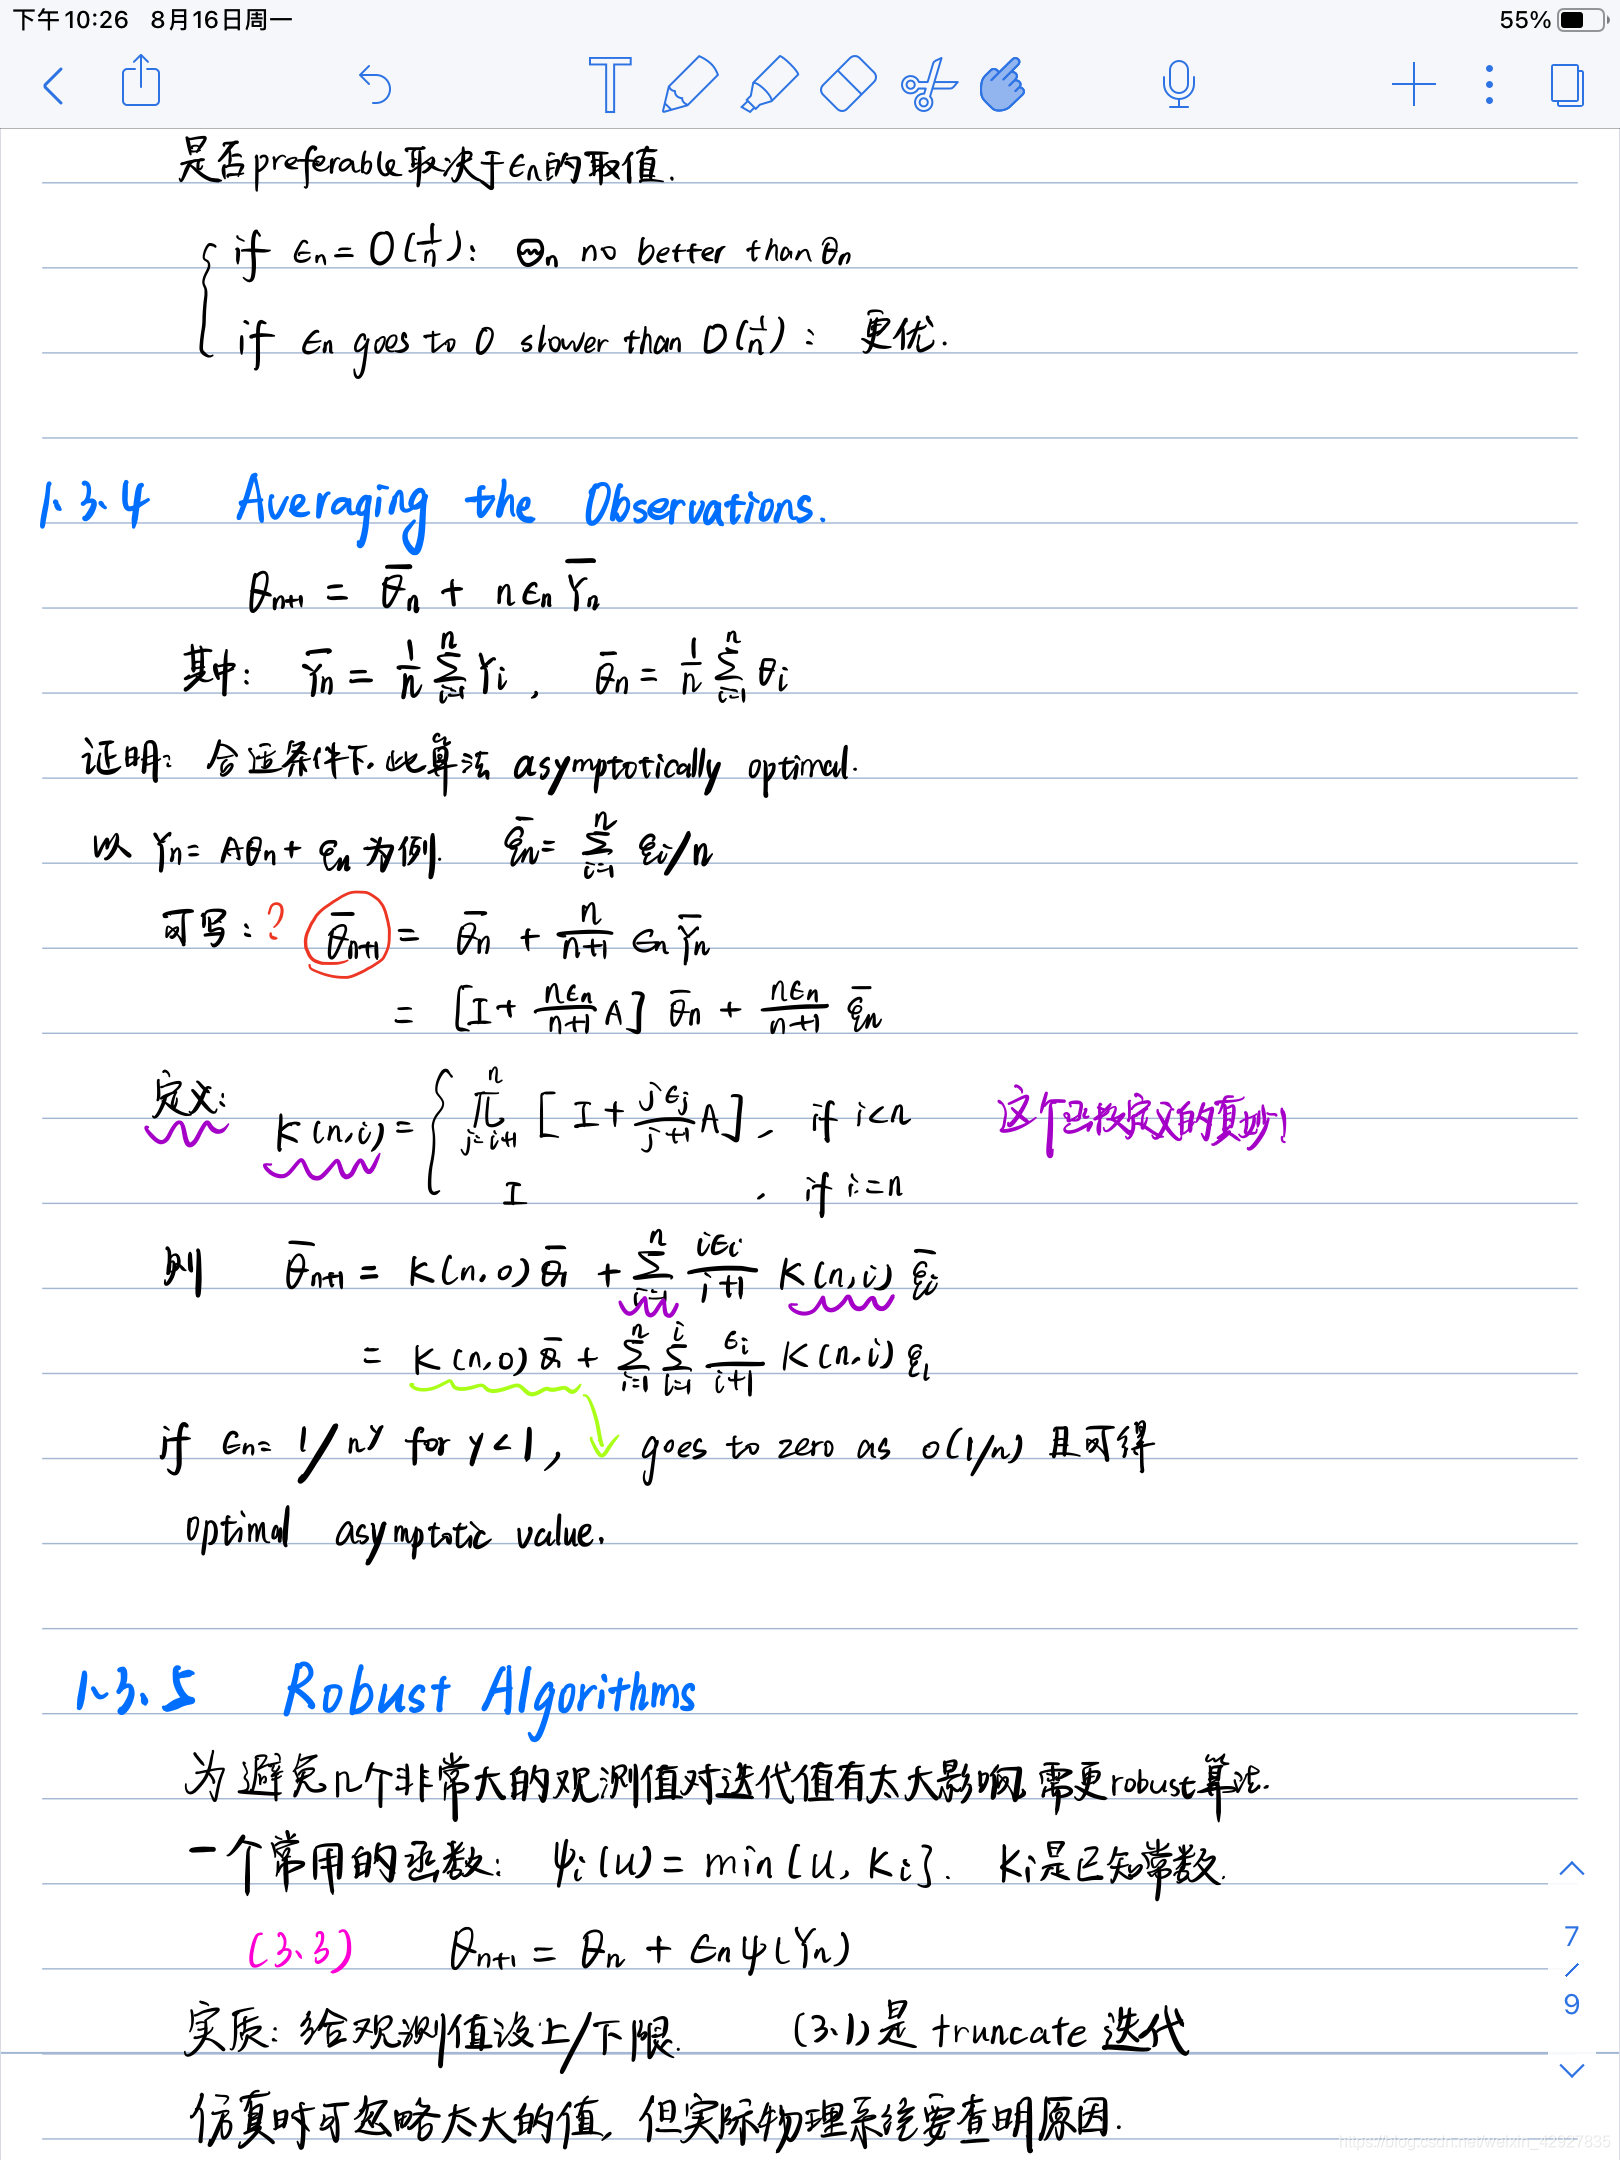 下午10:26 8月16日周一 55%
是否preferable取决于εn的取值.
if εn = O(1/n): Θn no better than θn
if εn goes to 0 slower than O(1/n): 更优.
1.3.4 Averaging the Observations.
θn+1 = θ̄n + nεn Ȳn
其中: Ȳn = 1/n Σ(i=1→n) Yi, θ̄n = 1/n Σ(i=1→n) θi
证明: 合适条件下.此算法 asymptotically optimal.
以 Yn = Aθn + ξn 为例. ξ̄n = Σ(i=1→n) ξi/n
可写: ? θ̄n+1 = θ̄n + n/(n+1) εn Ȳn
= [I + nεn/(n+1) A] θ̄n + nεn/(n+1) ξ̄n
定义: K(n,i) = { Π(j=i+1→n) [I + jεj/(j+1) A], if i<n 这个函数定义的真妙!
I , if i=n
则 θ̄n+1 = K(n,0) θ̄1 + Σ(i=1→n) iεi/(i+1) K(n,i) ξ̄i
= K(n,0) θ̄1 + Σ(i=1→n) Σ(l=1→i) εi/(i+1) K(n,i) ξl
if εn = 1/n^γ for γ<1, goes to zero as o(1/n) 且可得
optimal asymptotic value.
1.3.5 Robust Algorithms
为避免n个非常大的观测值对迭代值有太大影响,需更robust算法.
一个常用的函数: ψi(u) = min{u, Ki}. Ki是已知常数.
(3.3) θn+1 = θn + εnψ(Yn)
实质: 给观测值设上/下限. (3.1)是 truncate 迭代
仿真时可忽略太大的值, 但实际物理系统要查明原因.
7
/
9
https://blog.csdn.net/weixin_42927835